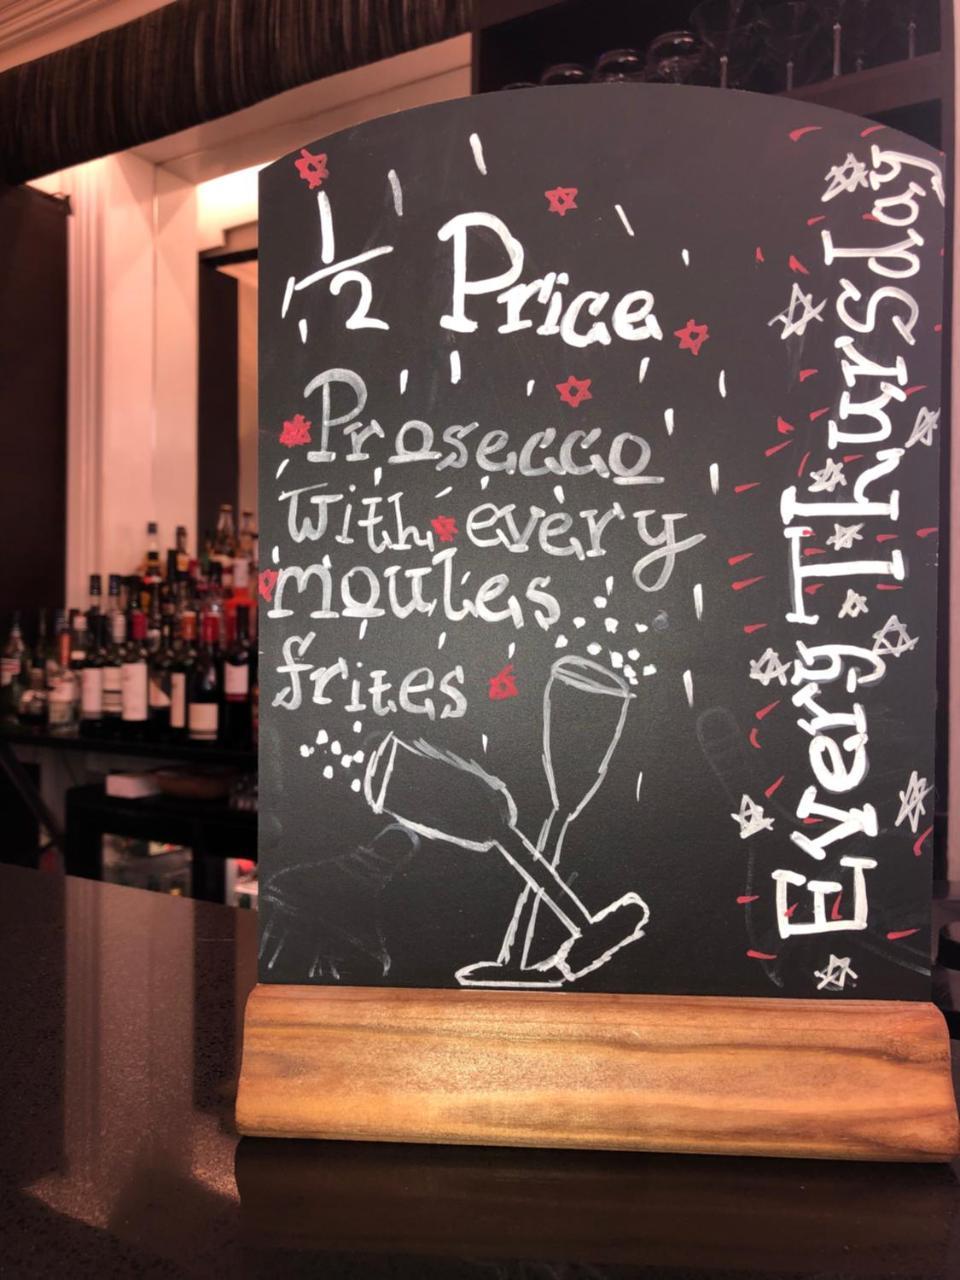 1/2 Price
Prosecco
with every
moules
frites
Every Thursday